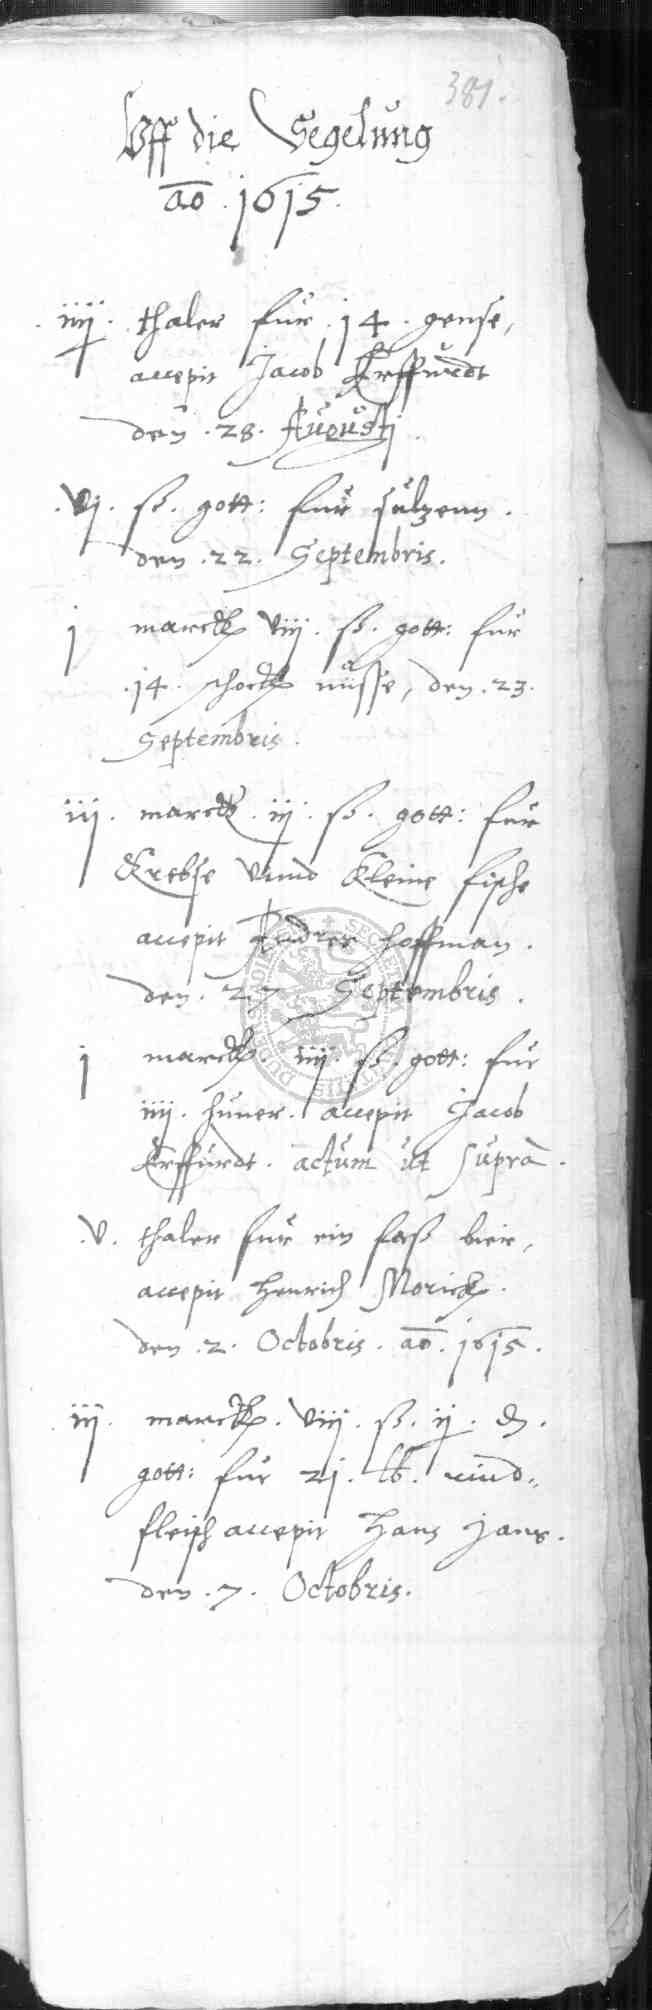 381.
Vff die Segelung
ao .1615.
.iiij. thaler fur .14. gense,
accepit Jacob Erffurdt
den .28. Augustj
.vj. ß. gott: fur sultzenn.
den .22. Septembris.
j marck viij. ß. gott: fur
.14. schock nüsse, den .23.
Septembris.
iij. marck. iij. ß. gott: fur
Krebse vnnd Kleine fische
accepit Andres Hoffman.
den .27 Septembris.
j marck. iiij. ß. gott: fur
iiij. huner. accepit Jacob
Erffurdt. actum ut supra.
.v. thaler fur ein faß bier,
accepit Henrich Morick.
den .2. Octobris. ao. 1615.
iij. marck. viij. ß. ij. d.
gott: fur 21. lb. rind-
fleisch accepit Hans Jane.
den .7. Octobris.